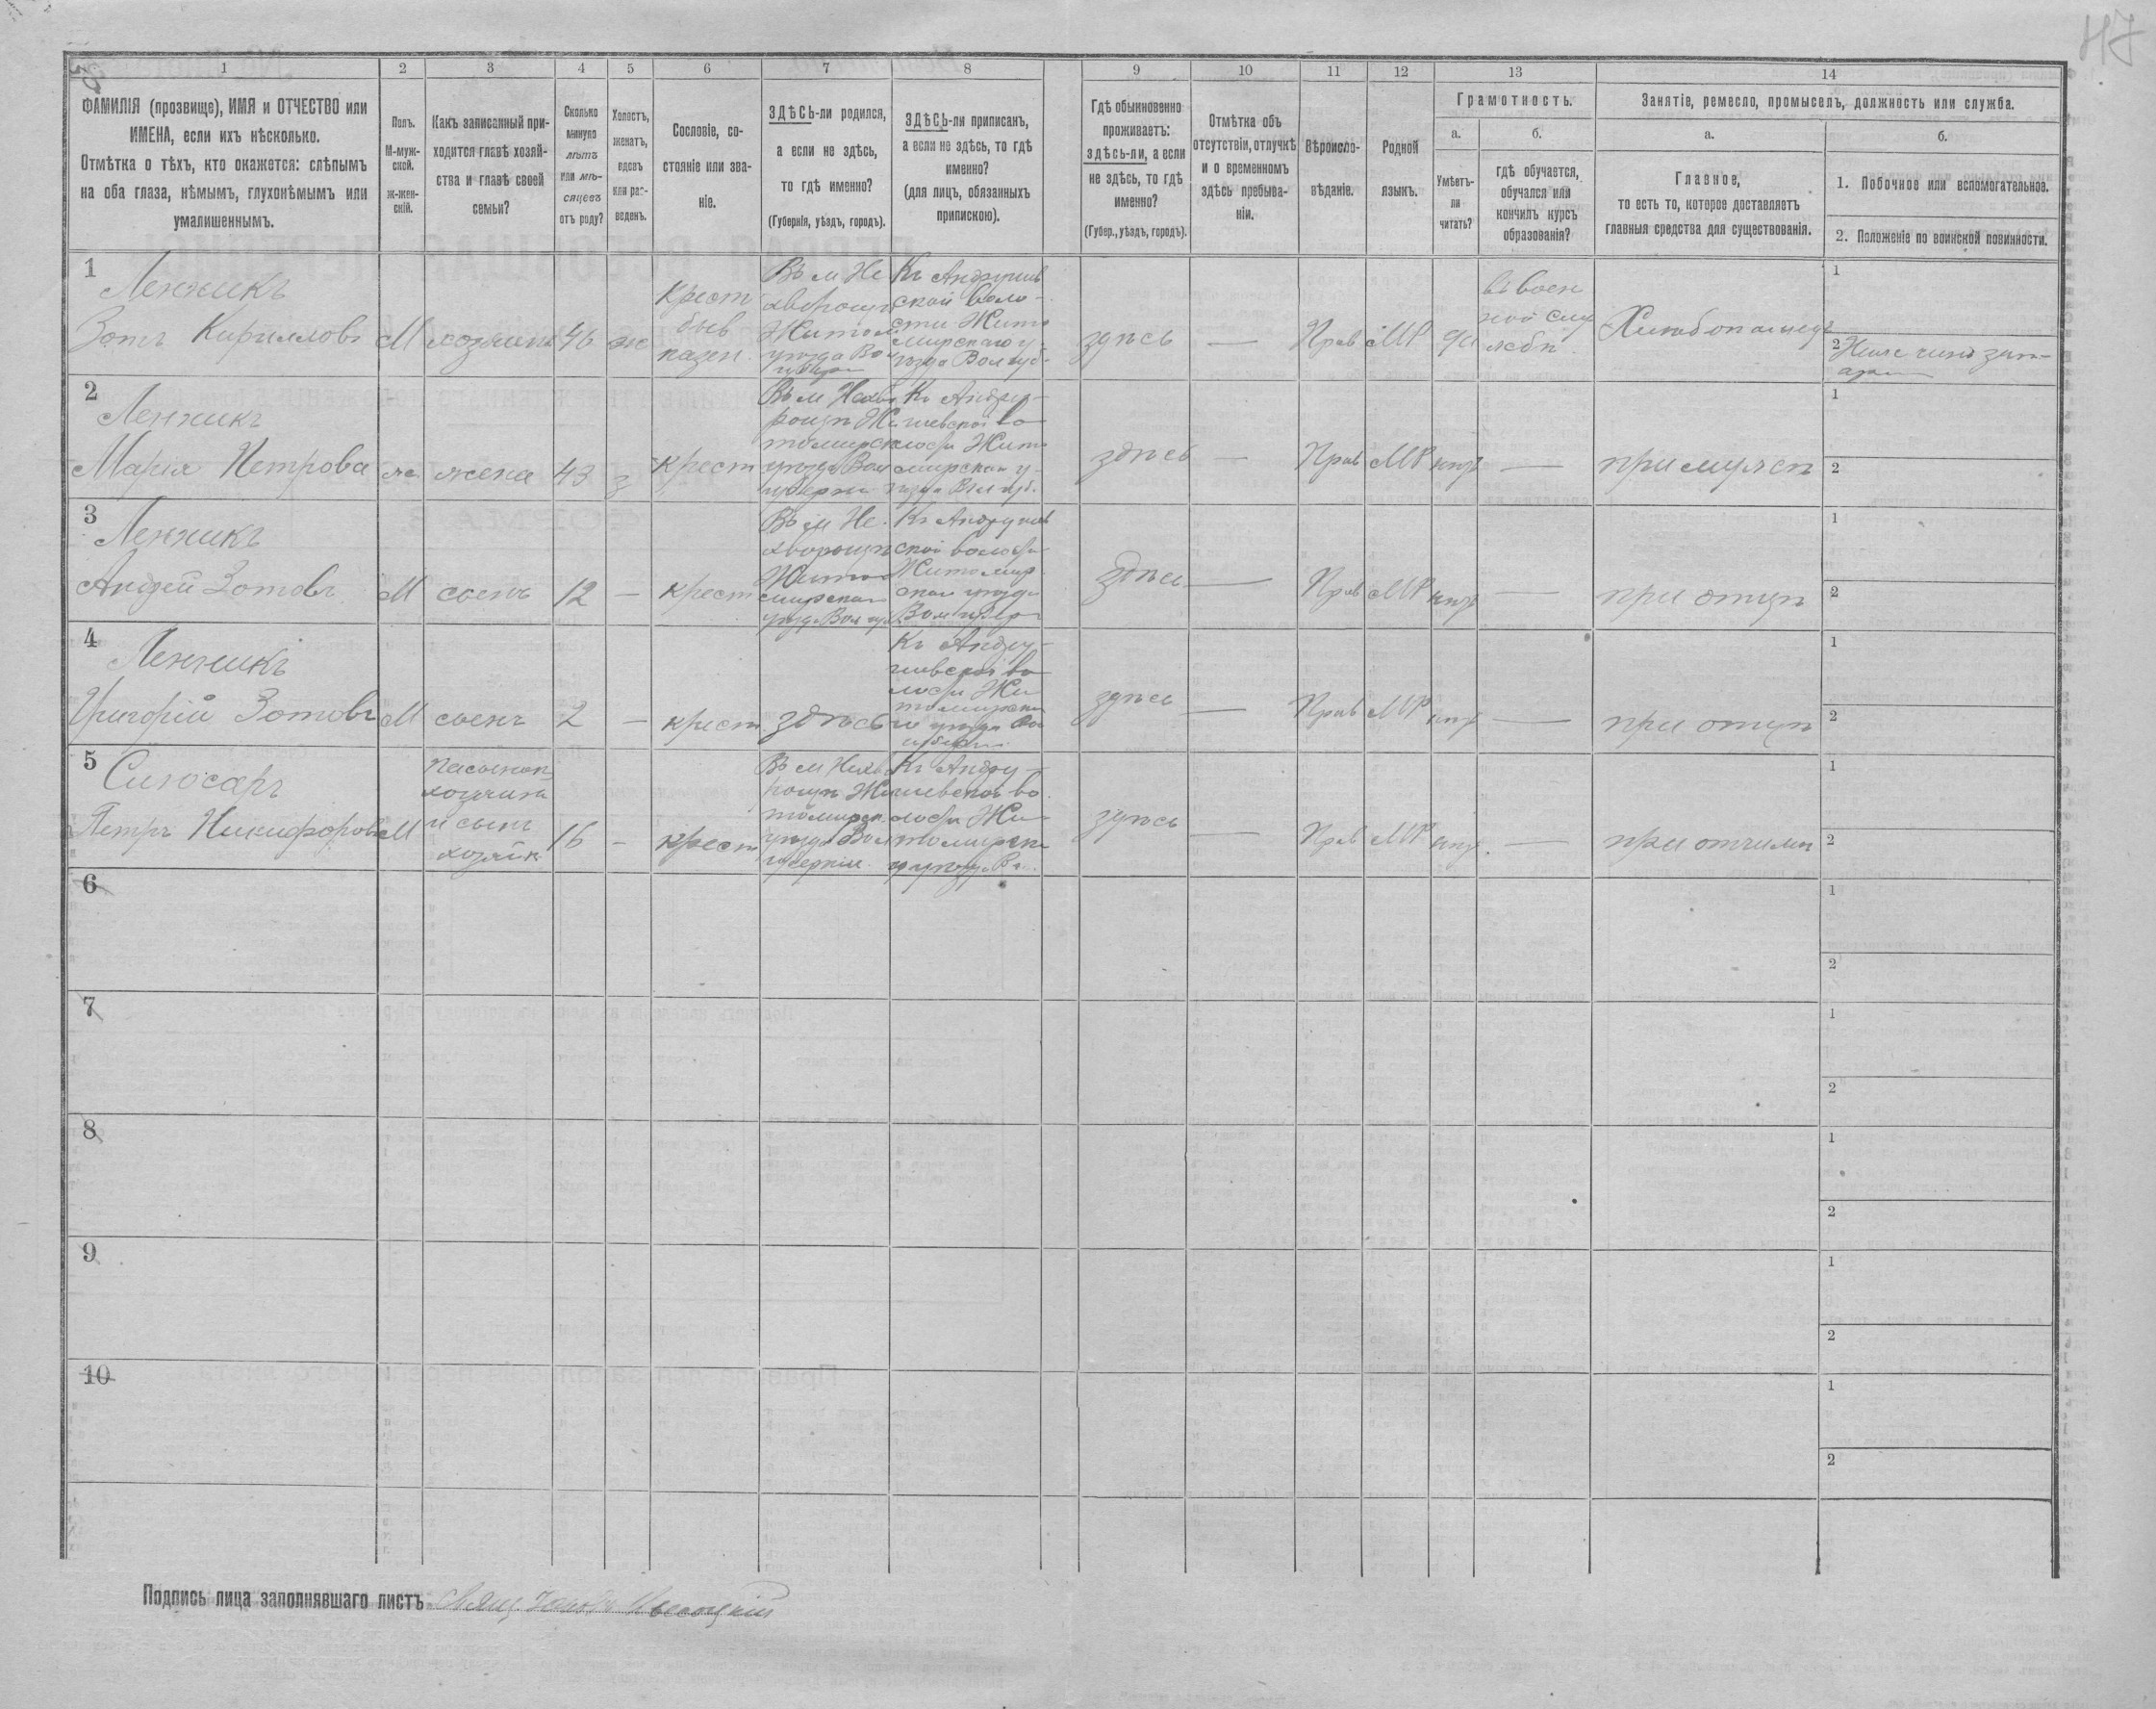 47
1 2 3 4 5 6 7 8 9 10 11 12 13 14
ФАМИЛІЯ (прозвище), ИМЯ и ОТЧЕСТВО или
ИМЕНА, если ихъ нѣсколько.
Отмѣтка о тѣхъ, кто окажется: слѣпымъ
на оба глаза, нѣмымъ, глухонѣмымъ или
умалишеннымъ.
Полъ.
М-муж-
ской.
ж-жен-
скій.
Какъ записанный при-
ходится главѣ хозяй-
ства и главѣ своей
семьи?
Сколько
минуло
лѣтъ
или мѣ-
сяцевъ
отъ роду?
Холостъ,
женатъ,
вдовъ
или раз-
веденъ.
Сословіе, со-
стояніе или зва-
ніе.
ЗДѢСЬ-ли родился,
а если не здѣсь,
то гдѣ именно?
(Губернія, уѣздъ, городъ).
ЗДѢСЬ-ли приписанъ,
а если не здѣсь, то гдѣ
именно?
(для лицъ, обязанныхъ
припискою).
Гдѣ обыкновенно
проживаетъ:
здѣсь-ли, а если
не здѣсь, то гдѣ
именно?
(Губер., уѣздъ, городъ).
Отмѣтка объ
отсутствіи, отлучкѣ
и о временномъ
здѣсь пребыва-
ніи.
Вѣроиспо-
вѣданіе.
Родной
языкъ.
Грамотность.
а.
Умѣетъ-
ли
читать?
б.
гдѣ обучается,
обучался или
кончилъ курсъ
образованія?
Занятіе, ремесло, промыселъ, должность или служба.
а.
Главное,
то есть то, которое доставляетъ
главныя средства для существованія.
б.
1. Побочное или вспомогательное.
2. Положеніе по воинской повинности.
1
Ленчикъ
Зотъ Кирилловъ М хозяинъ 46 ж
Крест
быв
казен.
Въ м Не
хворощѣ
Житом
уѣзда Вол
губерн
Къ Андрушев
ской воло-
сти Жито
мирскаго у-
ѣзда Вол губ.
здѣсь — Прав МР да
въ воен
ной слу
жбѣ
Хлѣбопашецъ
1
2
2
Ленчикъ
Марія Петрова ж. жена 43 з крест
Въ м Нехво
рощѣ Жи
томирск
уѣзда Вол
губерніи
Къ Андру-
шевской во
лости Жито
мирскаго у-
ѣзда Вол губ.
здѣсь — Прав МР нѣтъ — при мужѣ
1
2
3
Ленчикъ
Андрей Зотовъ М сынъ 12 — крест
Въ м Не
хворощѣ
Жито
мирскаго
уѣзда Вол гу
Къ Андрушев
ской волости
Житомир
скаго уѣзда
Вол губер
здѣсь — Прав МР нѣтъ — при отцѣ
1
2
4
Ленчикъ
Григорій Зотовъ М сынъ 2 — крест. здѣсь
Къ Андру-
шевской во
лости Жи
томирска
го уѣзда Вол
губерніи
здѣсь — Прав МР нѣтъ — при отцѣ
1
2
5
Слюсаръ
Петръ Никифоровъ М
пасынок
хозяина
и сынъ
хозяйк.
16 — крест
Въ м Нехво
рощѣ Жи
томирск.
уѣзда Вол
губерніи.
Къ Андру-
шевской во
лости Жи
томирска
го уѣзда Во
здѣсь — Прав МР нѣтъ. — при отчимѣ
1
2
6
1
2
7
1
2
8
1
2
9
1
2
10
1
2
Подпись лица заполнявшаго листъ